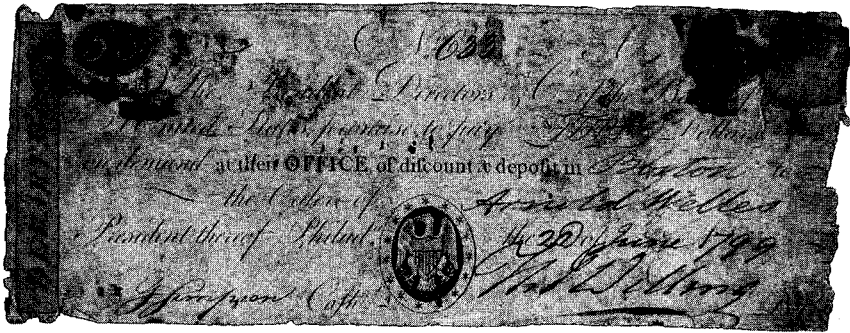 N 633
The President Directors & C. of the Bank of
the United States promise to pay Dollars
on demand at their OFFICE of discount & deposit in Boston to
the Order of Arnold Welles
President thereof Philad the 22 of June 1799
G Simpson Cash Tho Willing